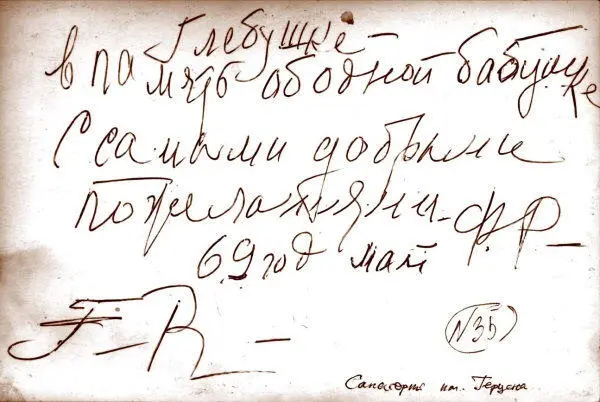 Глебушке
в память об одной бабушке
С самыми добрыми
пожеланиями – Ф.Р –
69 год май
F – R –
N 35
Санатория им. Герцена